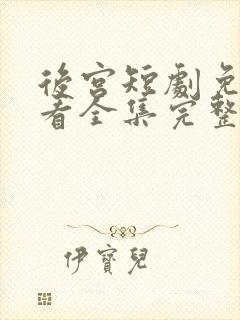 後宮短劇免
看全集完整
伊寶兒